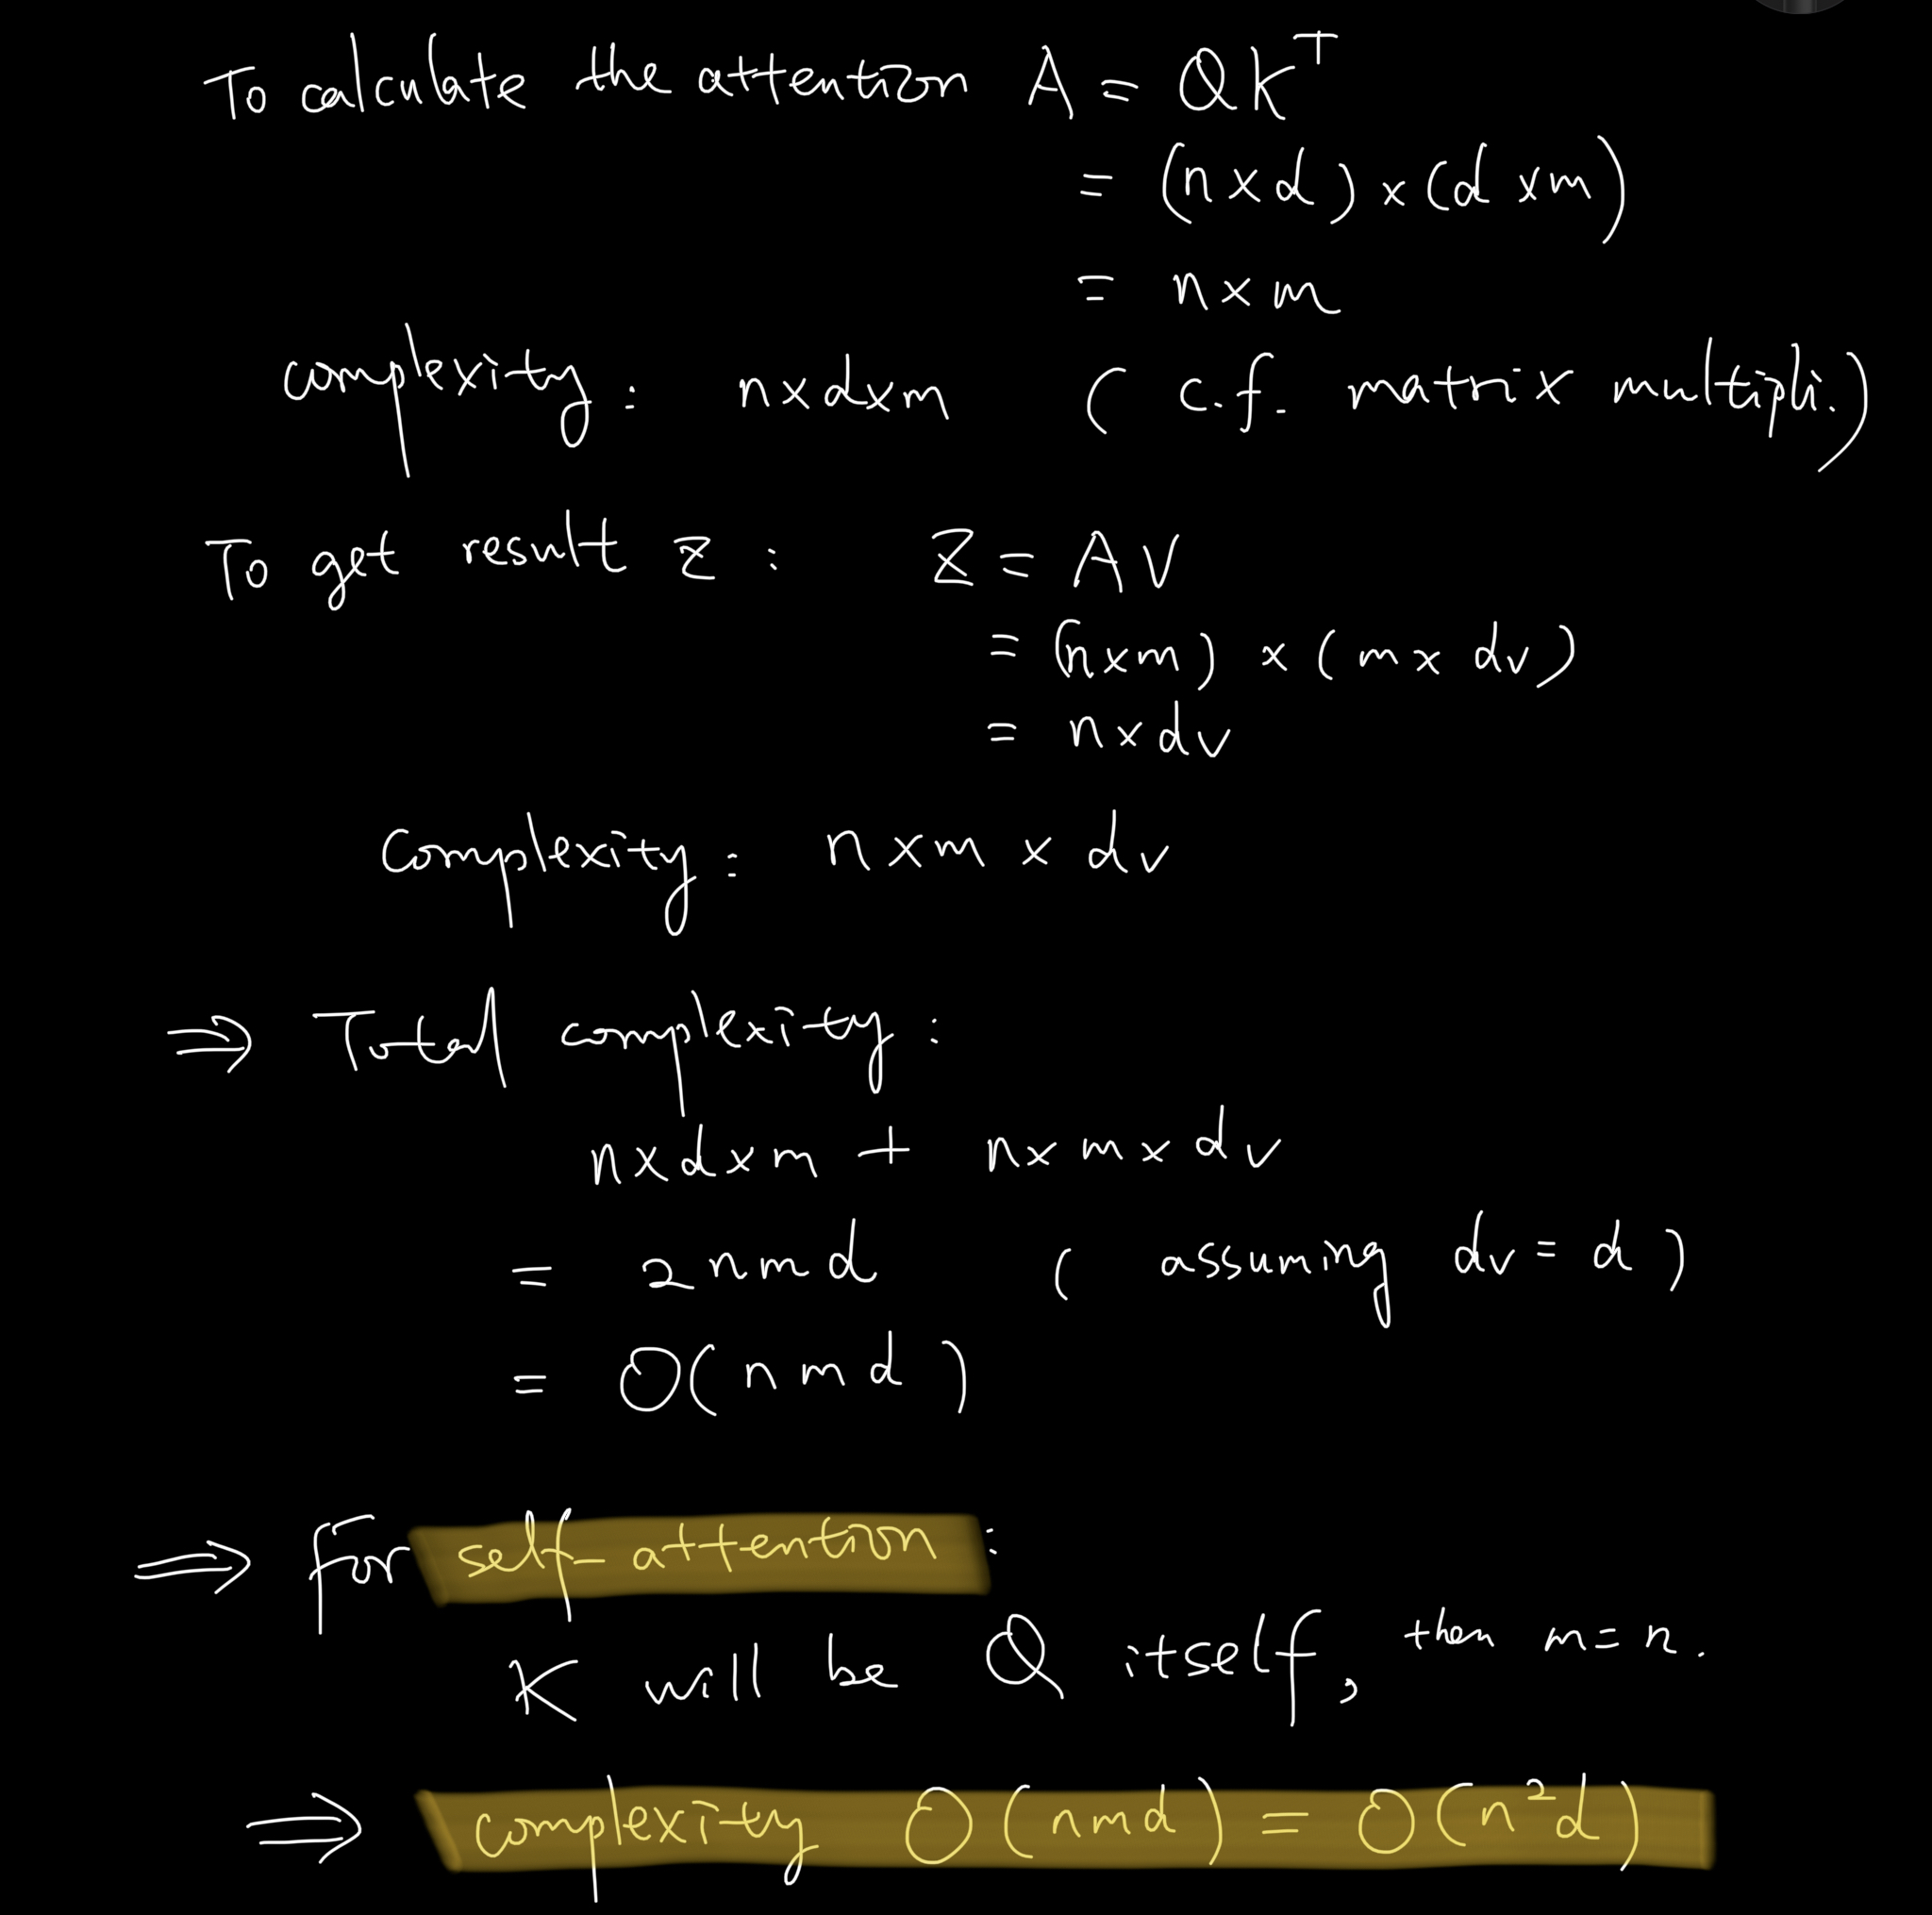 To calculate the attention A = QKᵀ
= (n×d) × (d×m)
= n×m
complexity: n×d×m ( c.f. matrix multipli.)
To get result z : Z = AV
= (n×m) × (m× dv)
= n×dv
Complexity: n×m × dv
⇒ Total complexity:
n×d×m + n×m×dv
= 2nmd ( assuming dv = d )
= O(nmd)
⇒ For self-attention:
K will be Q itself, then m=n.
⇒ complexity O(nmd) = O(n²d)